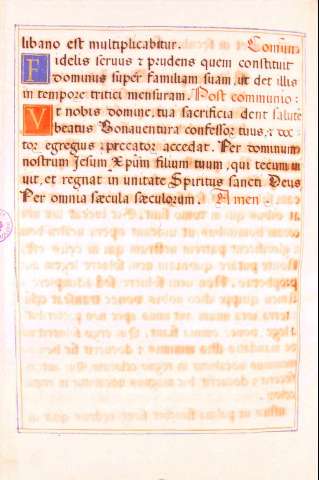 libano est multiplicabitur. Comūnio
Fidelis seruus & prudens quem constituit
dominus super familiam suam, ut det illis
in tempore tritici mensuram. Post communio:
Vt nobis domine, tua sacrificia dent salutē
beatus Bonauentura confessor tuus, & doc
tor egregius, precator accedat. Per dominum
nostrum Jesum Xpūm filium tuum, qui tecum ui
uit, et regnat in unitate Spiritus sancti Deus
Per omnia sæcula sæculorum. Amen.